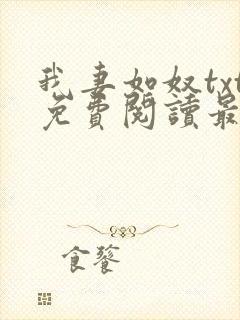 我妻如奴txt
免費閱讀最
食餮